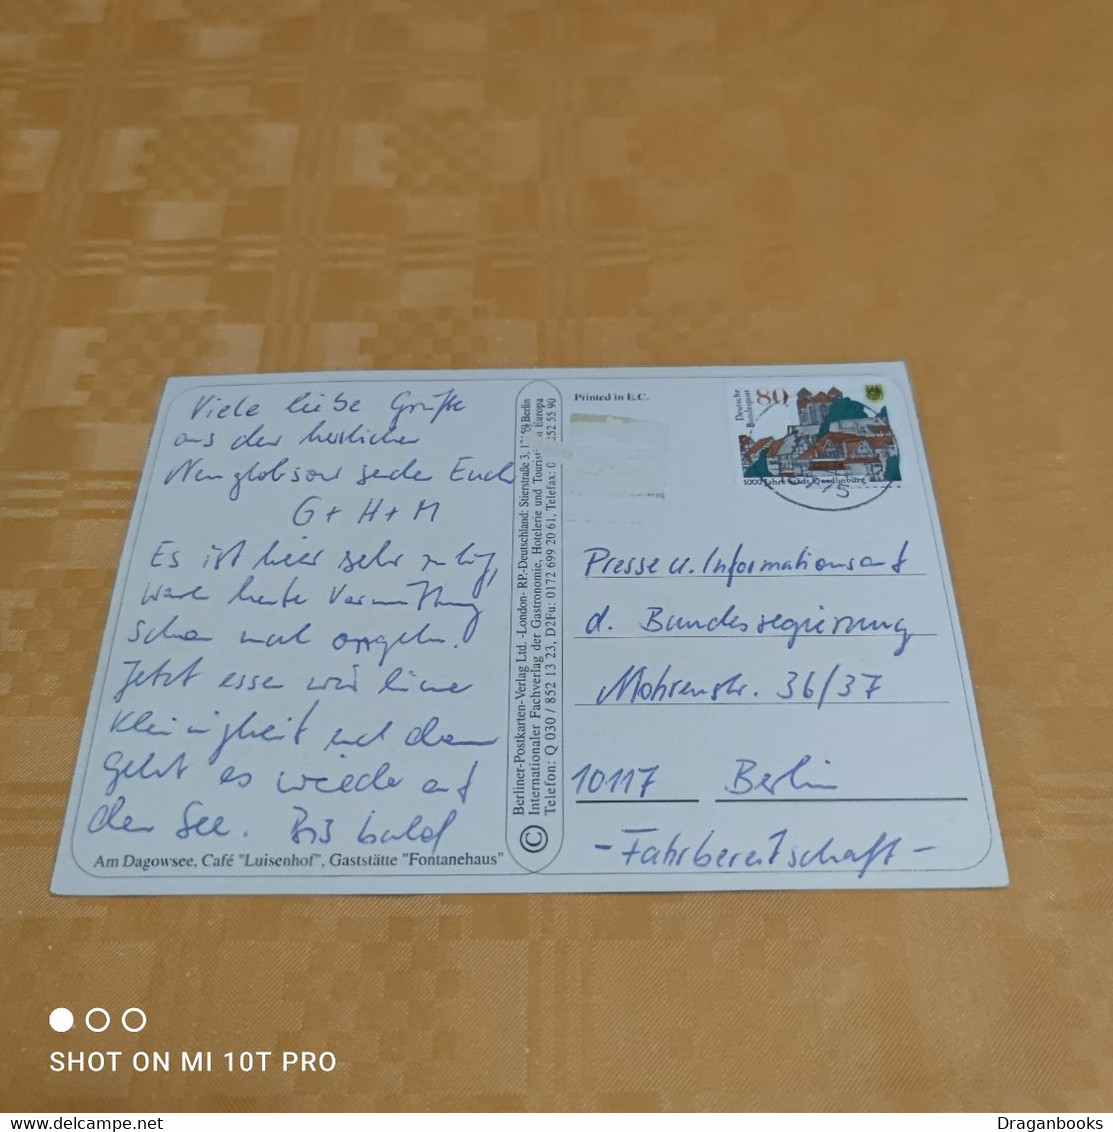 Viele liebe Grüße
aus der herrlichen
Neuglobsow sendet Euch
G + H + M
Es ist hier sehr ruhig,
waren heute Vormittag
schon mal angeln.
Jetzt essen wir eine
Kleinigkeit und dann
geht es wieder auf
den See. Bis bald
Am Dagowsee, Café "Luisenhof", Gaststätte "Fontanehaus"
Berliner-Postkarten-Verlag Ltd. -London- RP.-Deutschland: Stierstraße 3, Berlin
Internationaler Fachverlag der Gastronomie, Hotelerie und Europa
Telefon: Q 030 / 852 13 23, D2Fu: 0172 699 20 61, Telefax: 252 55 90
©
Printed in E.C.
Deutsche
Bundespost
80
1000 Jahre Stadt Quedlinburg
Presse u. Informationsamt
d. Bundesregierung
Mohrenstr. 36/37
10117 Berlin
- Fahrbereitschaft -
SHOT ON MI 10T PRO
delcampe.net
Draganbooks